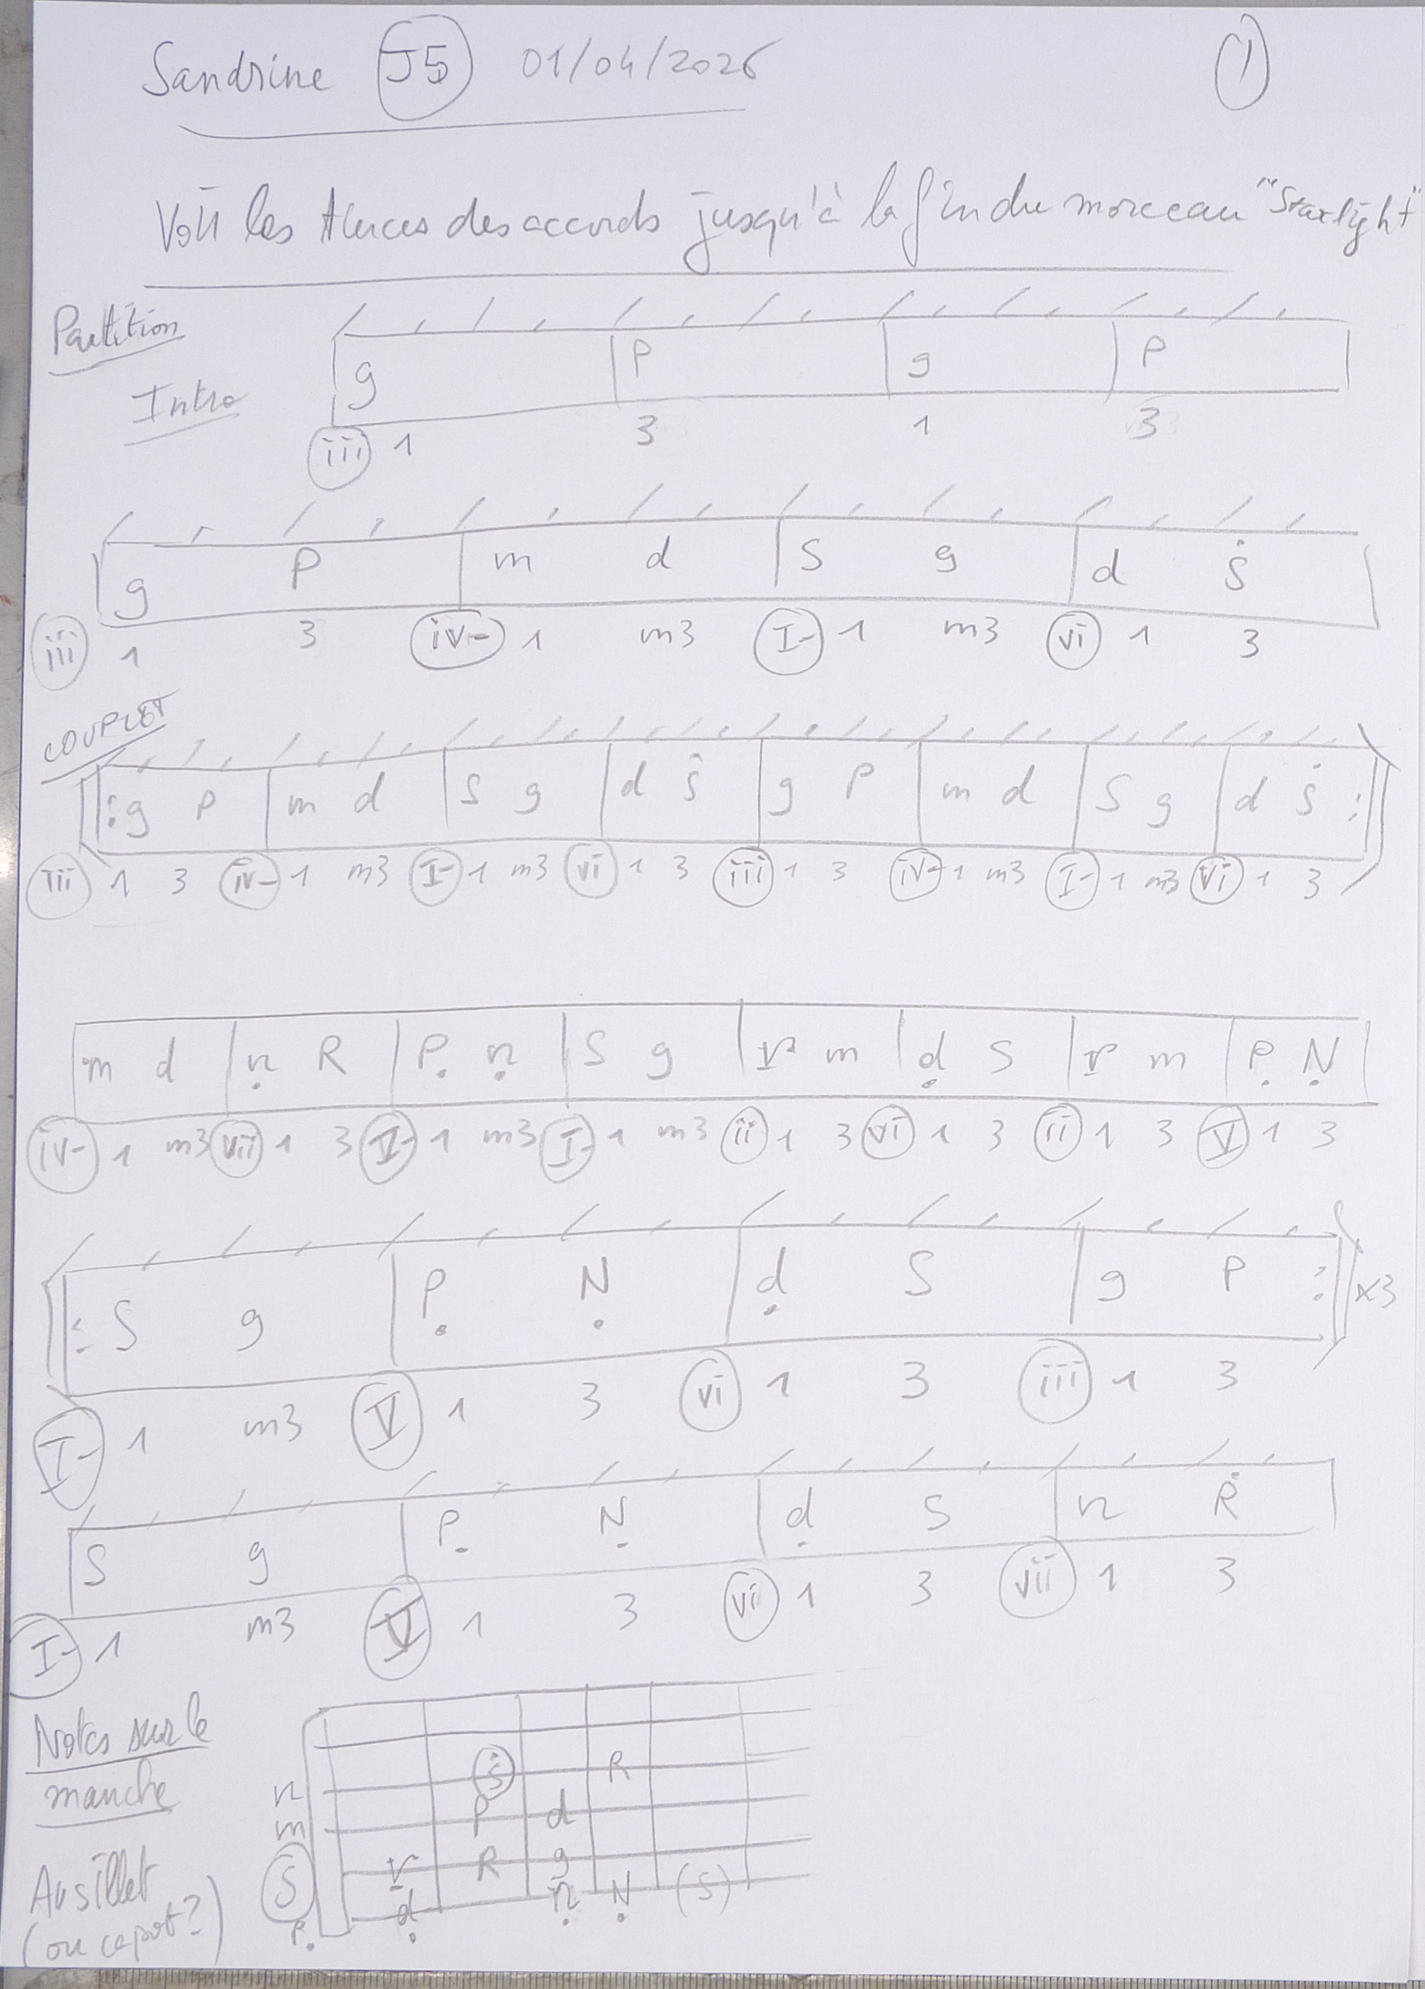 Sandrine J5 01/04/2026 1
Voir les tierces des accords jusqu'à la fin du morceau "Starlight"
Partition
Intro
g P g P
iii 1 3 1 3
g P m d S g d Ṡ
iii 1 3 iv- 1 m3 I- 1 m3 vi 1 3
COUPLET
: g P m d S g d Ṡ g P m d S g d Ṡ :
iii 1 3 iv- 1 m3 I- 1 m3 vi 1 3 iii 1 3 iv- 1 m3 I- 1 m3 vi 1 3
m d ṇ R P. ṇ S g r m ḍ S r m P. Ṇ
iv- 1 m3 vii 1 3 V- 1 m3 I- 1 m3 ii 1 3 vi 1 3 ii 1 3 V 1 3
: S g P. Ṇ ḍ S g P : x3
I- 1 m3 V 1 3 vi 1 3 iii 1 3
S g P. Ṇ ḍ S n Ṙ
I- 1 m3 V 1 3 vi 1 3 vii 1 3
Notes sur le
manche
n Ṡ R
m P d
Au sillet
(ou capot?)
S r R g
P. ḍ ṇ Ṇ (S)